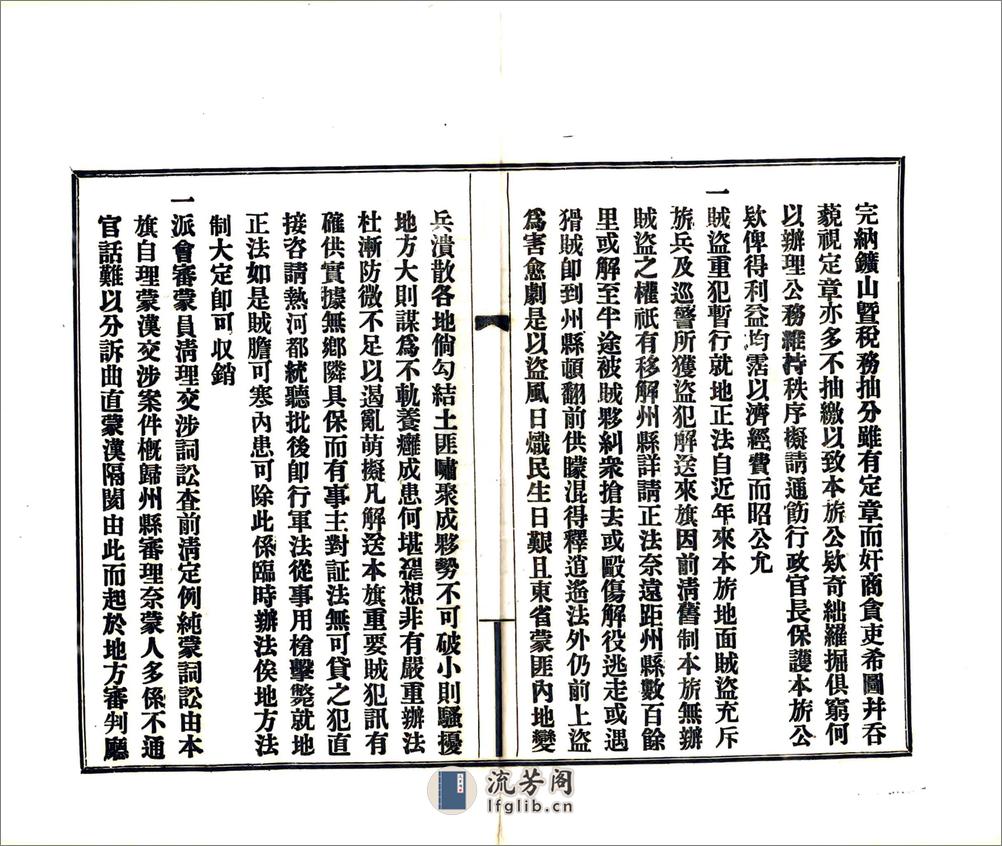 完納鑛山暨稅務抽分雖有定章而奸商貪吏希圖幷吞
藐視定章亦多不抽繳以致本旂公欵奇絀羅掘俱窮何
以辦理公務維持秩序擬請通飭行政官長保護本旂公
欵俾得利益均霑以濟經費而昭公允
一賊盜重犯暫行就地正法自近年來本旂地面賊盜充斥
旂兵及巡警所獲盜犯解送來旗因前淸舊制本旂無辦
賊盜之權祇有移解州縣詳請正法奈遠距州縣數百餘
里或解至半途被賊夥糾衆搶去或毆傷解役逃走或遇
猾賊卽到州縣頓翻前供矇混得釋逍遙法外仍前上盜
爲害愈劇是以盜風日熾民生日艱且東省蒙匪內地變
兵潰散各地倘勾結土匪嘯聚成夥勢不可破小則騷擾
地方大則謀爲不軌養癰成患何堪設想非有嚴重辦法
杜漸防微不足以遏亂萌擬凡解送本旗重要賊犯訊有
確供實據無鄉隣具保而有事主對証法無可貸之犯直
接咨請熱河都統聽批後卽行軍法從事用槍擊斃就地
正法如是賊膽可寒內患可除此係臨時辦法俟地方法
制大定卽可收銷
一派會審蒙員淸理交涉詞訟查前淸定例純蒙詞訟由本
旗自理蒙漢交涉案件槪歸州縣審理奈蒙人多係不通
官話難以分訴曲直蒙漢隔閡由此而起於地方審判廳
流芳阁
lfglib.cn